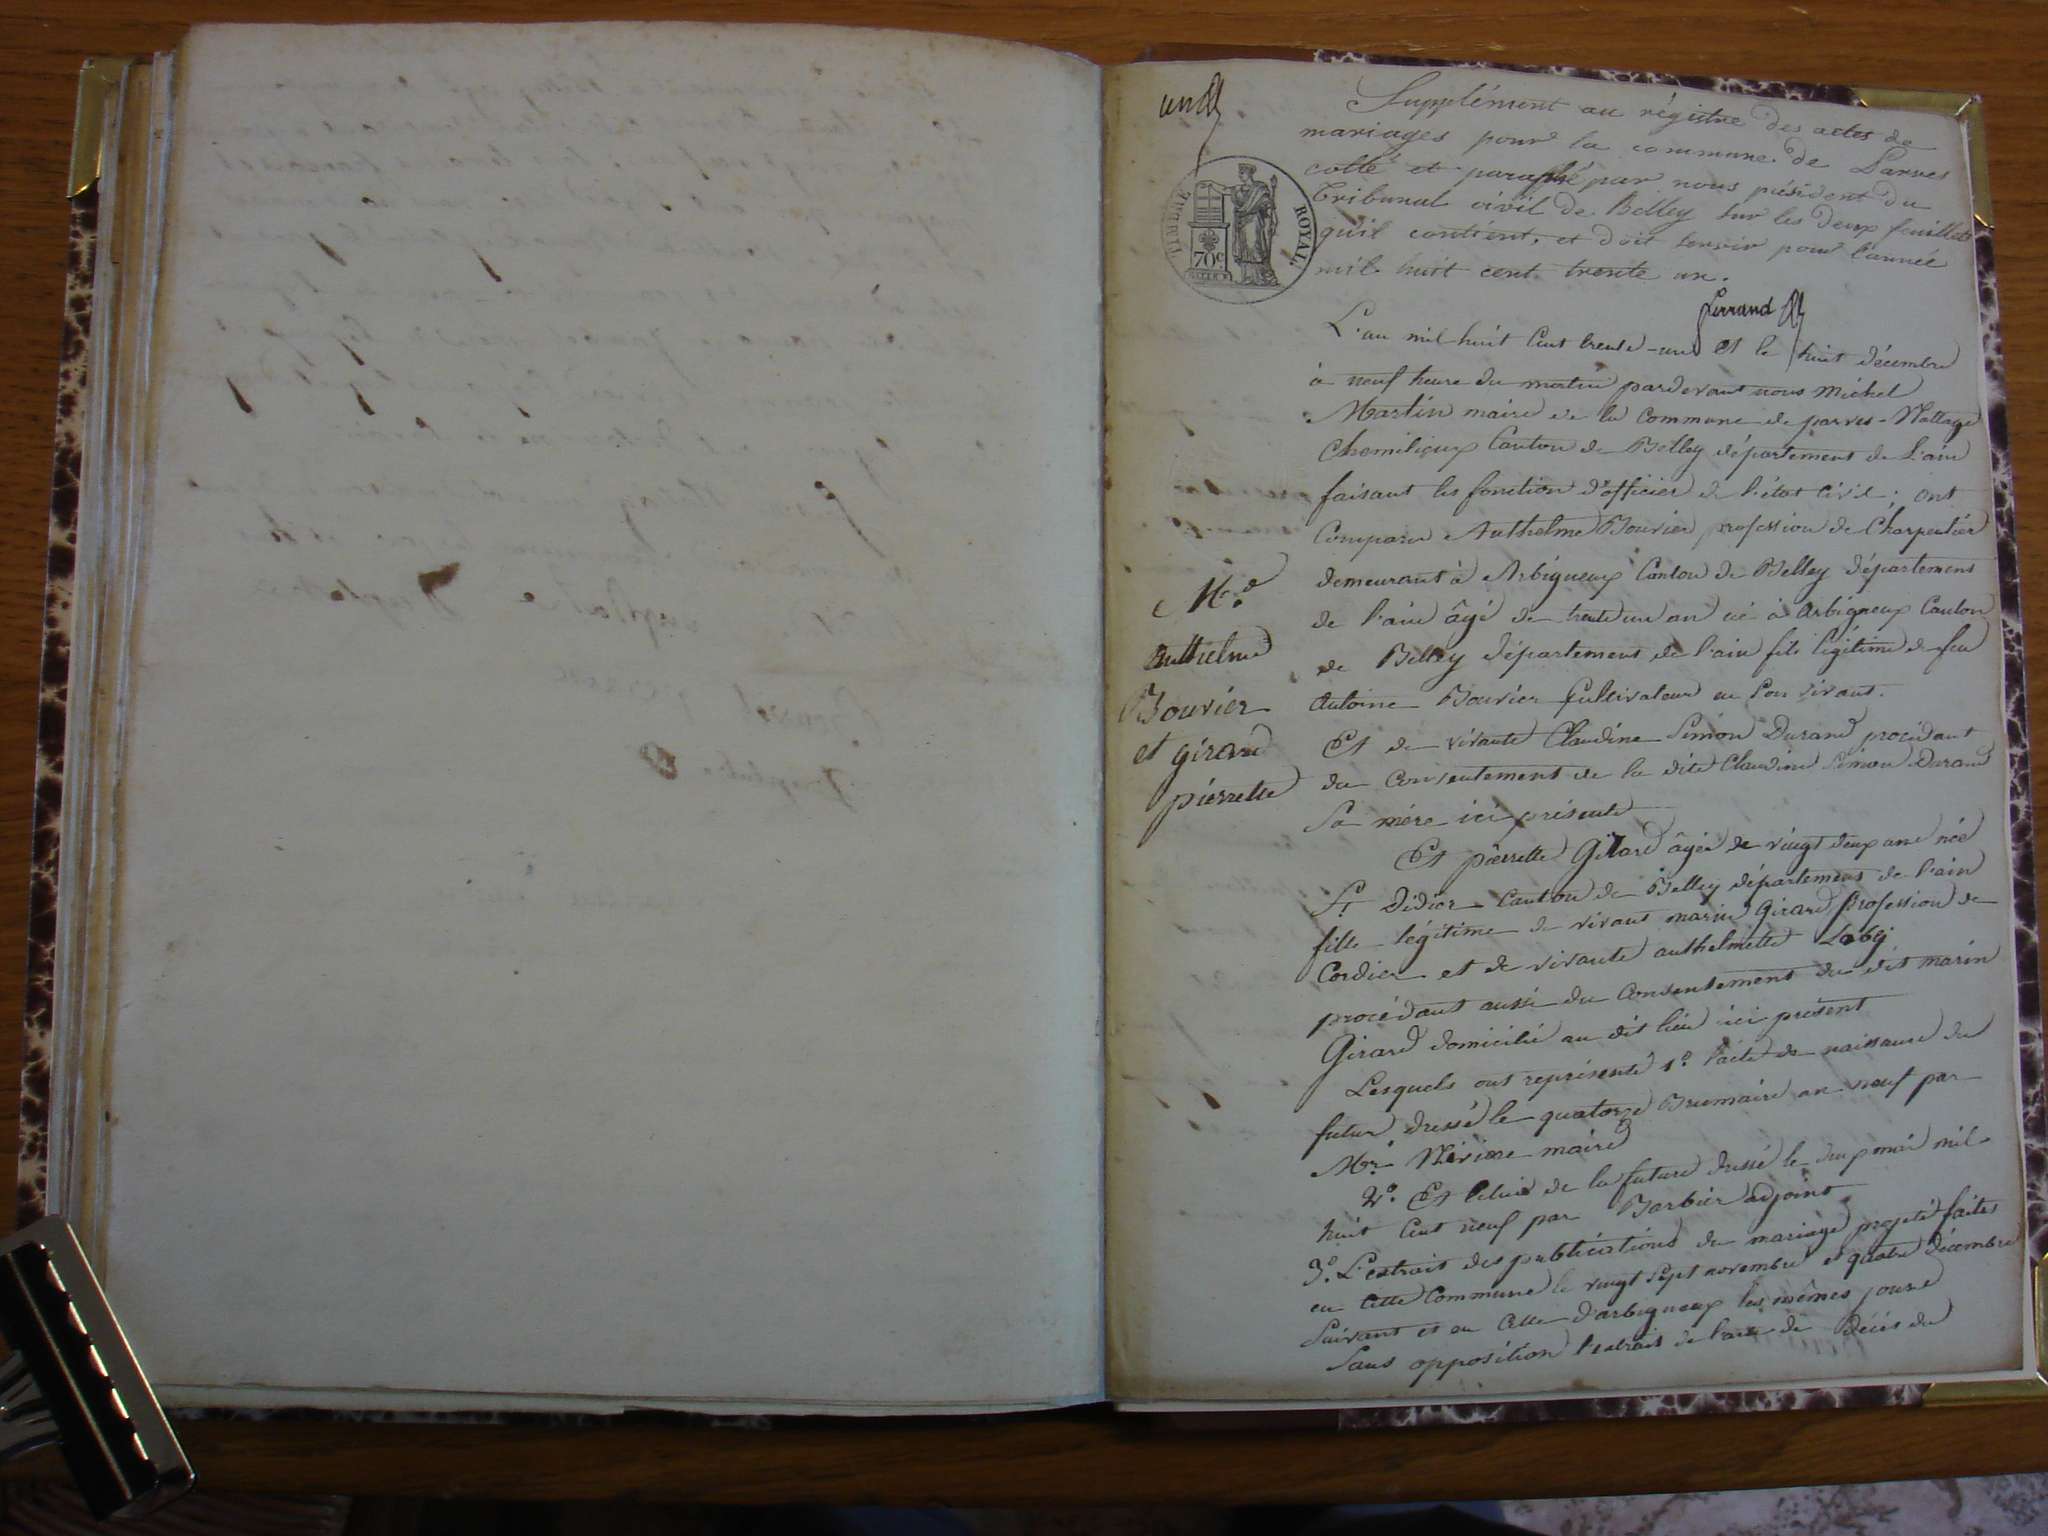 un
Supplément au régistre des actes de
mariages pour la commune de Parves
cotté et paraphé par nous président du
Tribunal civil de Belley sur les deux feuillets
qu'il contient, et doit servir pour l'année
mil huit cent trente un.
TIMBRE ROYAL
70c
Perrand
L'an mil huit Cent trente-un et le huit décembre
à neuf heure du matin pardevant nous Michel
Martin maire de la Commune de parves-Nattage
Chemilieux Canton de Belley département de L'ain
faisant les fonction d'officier de l'état civil; ont
Comparu Anthelme Bouvier profession de Charpentier
demeurant à Arbigneux Canton de Belley département
de l'ain âgé de trente un an né à Arbigneux Canton
de Belley département de l'ain fils légitime de feu
Antoine Bouvier Cultivateur en Son vivant.
Et de vivante Claudine Simon Durand procédant
du Consentement de la dite Claudine Simon Durand
Sa mère ici présente
M.
Anthelme
Bouvier
et girard
pierrette
Et pierrette Girard âgée de vingt deux ans née
St Didier Canton de Belley département de l'ain
fille légitime de vivant marin Girard profession de
Cordier et de vivante anthelmette
procédant aussi du Consentement du dit marin
Girard domicilié au dit lieu ici présent
Lesquels ont représenté 1.º l'acte de naissance du
futur dressé le quatorze Brumaire an neuf par
Mr. maire
2º. Et Celui de la future dressé le deux mai mil
huit Cent neuf par Barbier adjoint
3º. L'extrait des publications du mariage projeté faites
en Cette Commune le vingt Sept novembre et quatre décembre
Suivant et en Celle d'arbigneux les mêmes jours
Sans opposition l'extrait de l'acte de décès du